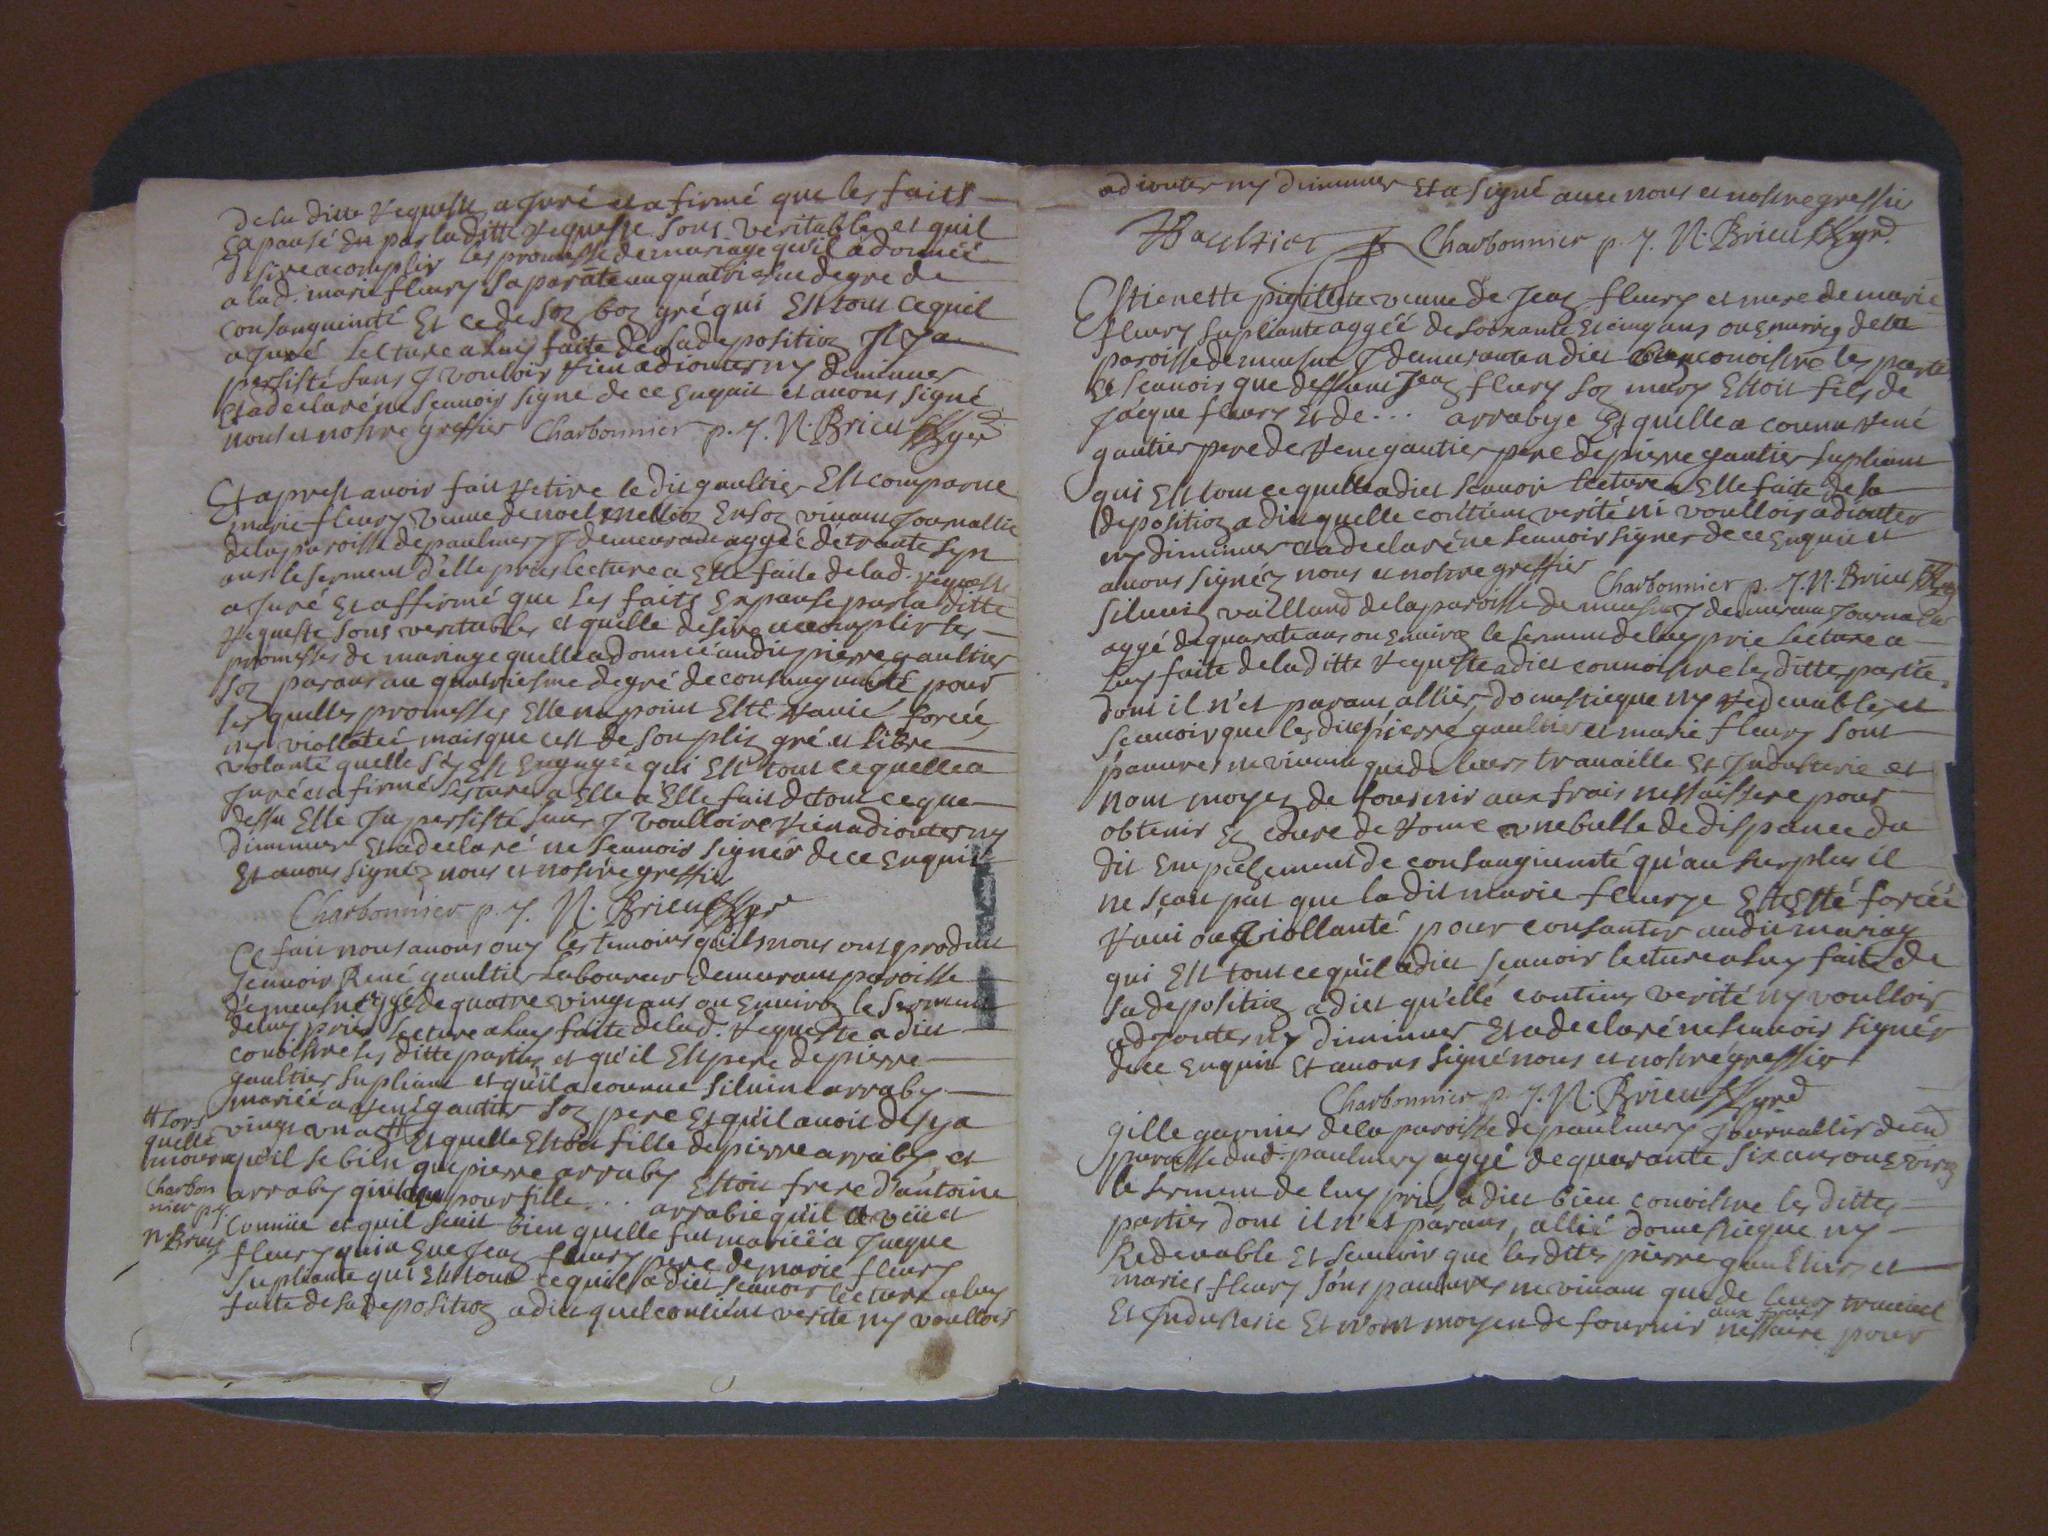 de la ditte requeste a Juré et afirmé que les faits
Exposé En par la ditte requeste sont veritable et quil
desire acomplir les promesse de mariage qu'il a donnéé
a lad. marie fleury sa parâte au quatriesme degre de
consanguinité Et ce de soz boz gré qui Est tout ce quil
a Juré lecture a luy faite de sa depositioz Jl ya
persisté sans J voulloir rien adiouter ny diminuer
Et a declaré ne scauoir signé de ce Enquit et auons signé
nous et nostre greffier Charbonnier p. J. N. Brieu
Et aprest auoir fait retire le dit gaultier Est comparue
marie fleury veuue de noel En soz viuant Journallie
de la paroisse de paulmery J demeurant aggéé de trante syx
ans le serment d'elle pris lecture a Elle faite de lad. requeste
a Juré Et affirmé que les faits Expause par la ditte
requeste sont veritables et quelle desire acomplir les
promesses de mariage quelle a donnéé au dit pierre gaultier
soz parant au quatriesme degré de consanguinité pour
les quelles promesses Elle na point Esté rauie forcéé
ny viollatéé mais que cest de son plin gré et libre
volanté quelle sy Est Engagéé qui Est tout ce quelle a
Juré et afirmé lecture a Elle a Elle fait de tout ce que
dessu Elle Ja persisté sans J voulloire rien adiouter ny
diminuer Et a declaré ne scauoir signér de ce Enquis
Et auons signéz nous et nostre greffier
Charbonnier p. J. N. Brieu
Ce fait nous auons ouy les temoins quils nous ont produit
scauoir René gaultier laboureur demeurant paroisse
de meusne aggé de quatre vingt ans ou Enuiroz le serment
de luy pris lecture a luy faite de lad. requeste a diet
conoistre les ditte parties et qu'il Est pere de pierre
gaultier supliant et qu'il a connue siluine arraby
mariéé a rené gautier soz pere Et qu'il auoit desja
# lors
quelle
mourue
Charbon
nier p. J.
N. Brieu
vingt vn a# Et quelle Estoit fille de pierre arraby et
qu'il se bien que pierre arraby Estoit frere d'antoine
arraby qui pour fille ... arrabie qu'il a veüe et
connüe et quil scait bien quelle fut mariéé a Jacque
fleury quin Eue Jeaz fleury pere de marie fleury
supliante qui Est tout ce quil a diet scauoir lecture a luy
faite de sa depositioz a diet quel contient verite ny voulloir
adiouter ny diminuer Et a signé auec nous et nostre greffier
Charbonnier p. J. N. Brieu
Estienette veuue de Jeaz fleury et mere de marie
fleury supliante aggéé de soixante et cinq ans ou Enuiroz de la
paroisse de meusne J demeurante a diet bien conoistre les partie
et scauoir que deffunt Jeaz fleury soz mary Estoit fils de
Jacque fleury Et de ... arrabye Et quelle a connu rené
gautier pere de rene gautier pere de pierre gautier supliant
qui Est tout ce quelle a diet scauoir lecture a Elle faite de sa
depositioz a dit quelle contient verité ni voulloir adiouter
ny diminuer et a declaré ne scauoir signer de ce Enquit et
auons signéz nous et nostre greffier Charbonnier p. J. N. Brieu
siluiz vailland de la paroisse de meusne J demeurant Journalie
aggé de quarate ans ou Enuiroz le serment de luy prie lecture a
luy faite de la ditte requeste a diet connoistre les ditte partie
dont il n'et parant allier, domestieque ny redeuable, et
scauoir que les dits pierre gaultier et marie fleury sont
pauures ne viuant que de leurs trauaille Et Jndusterie et
nont moyez de fournir aux frais nessaissere pour
obtenir Ez coure de rome vne bulle de dispance du
dit Empeschement de consanguinité qu'au surplus il
ne scait pas que la dit marie fleurye Este Esté forcéé
raui ou viollanté pour consanter au dit mariag
qui Est tout ce qu'il a diet scauoir lecture a luy faite de
sa depositioz a diet qu'elle contient verité ny voulloir
adjouter ny diminuer Et a declaré ne scauoir signér
de ce Enquis Et auons signé nous et nostre greffier
Charbonnier p. J. N. Brieu
gille garnier de la paroisse de paulmery Journallir de lad
paroisse dud. paulmery aggé de quarante six ans ou Enviroz
le serment de luy pris a diet bien conoistre les dittes
parties dont il n'et parans, allié domestieque ny
Redeuable Et scauoir que les dits pierre gaultier et
maries fleury sont pauures ne viuant que de leurs trauail
Et Jndusterie Et n'ont moyen de fournir aux frais nessaire pour